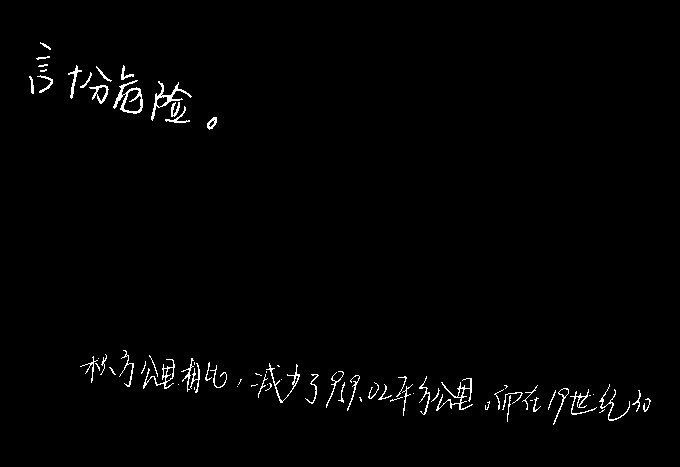 言十分危险。
积方公里相比，减少了959.02平方公里。而在19世纪30